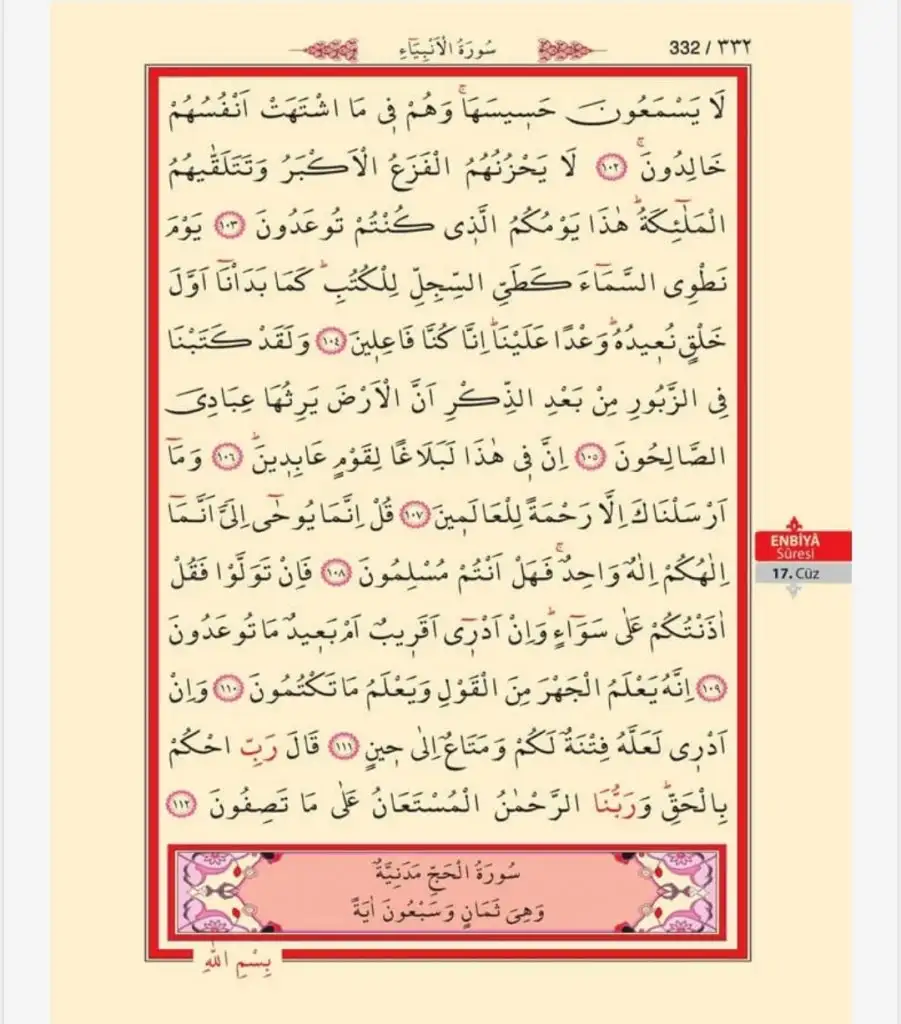 332 / ٣٣٢
سُورَةُ الْاَنْبِيَٓاءِ
لَا يَسْمَعُونَ حَسٖيسَهَاۚ وَهُمْ فٖي مَا اشْتَهَتْ اَنْفُسُهُمْ
خَالِدُونَۚ ﴿١٠٢﴾ لَا يَحْزُنُهُمُ الْفَزَعُ الْاَكْبَرُ وَتَتَلَقّٰيهُمُ
الْمَلٰٓئِكَةُؕ هٰذَا يَوْمُكُمُ الَّذٖي كُنْتُمْ تُوعَدُونَ ﴿١٠٣﴾ يَوْمَ
نَطْوِي السَّمَٓاءَ كَطَيِّ السِّجِلِّ لِلْكُتُبِؕ كَمَا بَدَأْنَٓا اَوَّلَ
خَلْقٍ نُعٖيدُهُؕ وَعْدًا عَلَيْنَاؕ اِنَّا كُنَّا فَاعِلٖينَ ﴿١٠٤﴾ وَلَقَدْ كَتَبْنَا
فِي الزَّبُورِ مِنْ بَعْدِ الذِّكْرِ اَنَّ الْاَرْضَ يَرِثُهَا عِبَادِيَ
الصَّالِحُونَ ﴿١٠٥﴾ اِنَّ فٖي هٰذَا لَبَلَاغًا لِقَوْمٍ عَابِدٖينَؕ ﴿١٠٦﴾ وَمَٓا
اَرْسَلْنَاكَ اِلَّا رَحْمَةً لِلْعَالَمٖينَ ﴿١٠٧﴾ قُلْ اِنَّمَا يُوحٰٓى اِلَيَّ اَنَّمَٓا
اِلٰهُكُمْ اِلٰهٌ وَاحِدٌۚ فَهَلْ اَنْتُمْ مُسْلِمُونَ ﴿١٠٨﴾ فَاِنْ تَوَلَّوْا فَقُلْ
اٰذَنْتُكُمْ عَلٰى سَوَٓاءٍؕ وَاِنْ اَدْرٖٓي اَقَرٖيبٌ اَمْ بَعٖيدٌ مَا تُوعَدُونَ
﴿١٠٩﴾ اِنَّهُ يَعْلَمُ الْجَهْرَ مِنَ الْقَوْلِ وَيَعْلَمُ مَا تَكْتُمُونَ ﴿١١٠﴾ وَاِنْ
اَدْرٖي لَعَلَّهُ فِتْنَةٌ لَكُمْ وَمَتَاعٌ اِلٰى حٖينٍ ﴿١١١﴾ قَالَ رَبِّ احْكُمْ
بِالْحَقِّؕ وَرَبُّنَا الرَّحْمٰنُ الْمُسْتَعَانُ عَلٰى مَا تَصِفُونَ ﴿١١٢﴾
ENBİYÂ
Sûresi
17. Cüz
سُورَةُ الْحَجِّ مَدَنِيَّةٌ
وَهِيَ ثَمَانٍ وَسَبْعُونَ اٰيَةً
بِسْمِ اللّٰهِ